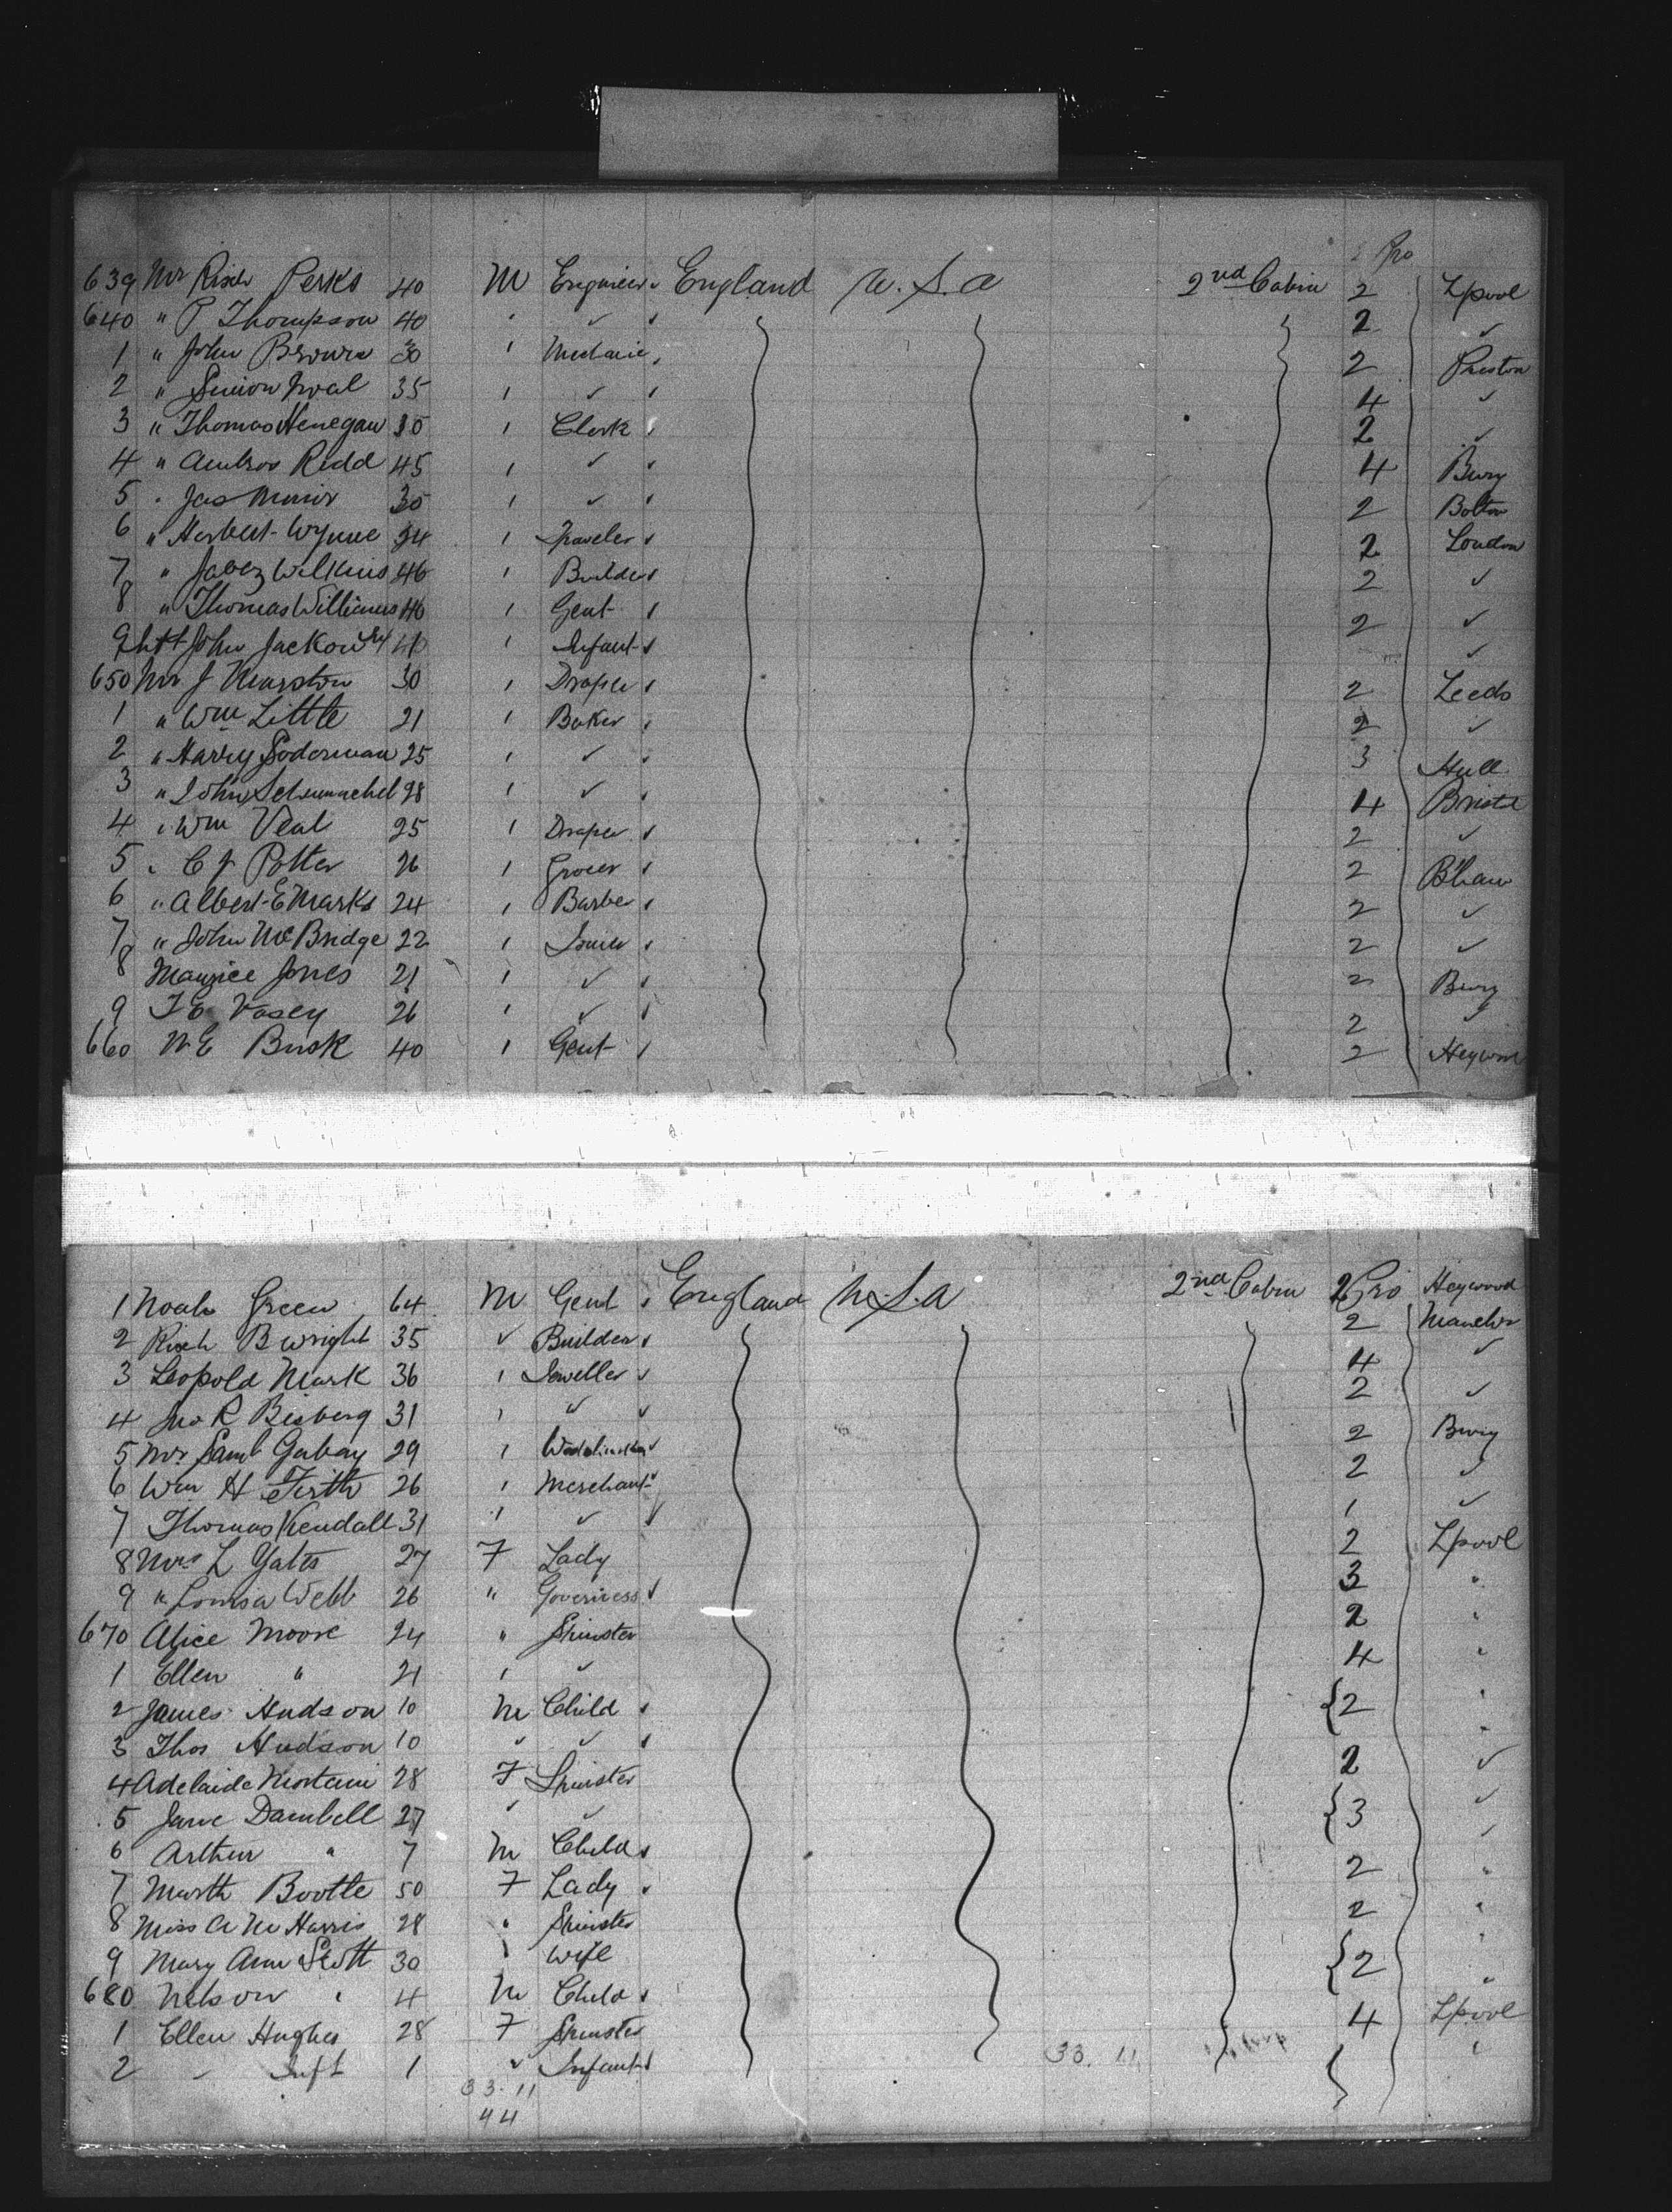 Pro
639 Mr Rich Perks 40 M Engineer England U.S.A 2nd Cabin 2 Lpool
640 " P Thompson 40 ✓ 2 ✓
1 " John Brown 30 2 Preston
2 " Simon 35 ✓ 4 ✓
3 " Thomas Henegan 30 Clerk 2 ✓
4 " Ambros Redd 45 ✓ 4 Bury
5 " Jas 30 ✓ 2 Bolton
6 " Herbert Wynne 34 Traveler 2 London
7 " Jabez Wilkins 46 Builder 2 ✓
8 " Thomas Williams 46 Gent 2 ✓
9 John Infant ✓
650 Mr J Marston 30 Draper 2 Leeds
1 " Wm Little 21 Baker 2 ✓
2 " Harry Soderman 25 ✓ 3 Hull
3 " John 28 ✓ 4 Bristl
4 " Wm Veal 25 Draper 2 ✓
5 " C J Potter 26 Grocer 2 B'ham
6 " Albert E Marks 24 Barber 2 ✓
7 " John McBridge 22 2 ✓
8 Maurice Jones 21 ✓ 2 Bury
9 T E Vasey 26 ✓ 2 ✓
660 W E Busk 40 Gent 2
1 Noah Green 64 M Gent England U.S.A 2nd Cabin 2 Pro Heywood
2 Rich B Wright 35 ✓ Builder 2
3 Leopold Mark 36 Jeweller 4 ✓
4 Jno R Bisberg 31 ✓ 2 ✓
5 Mr Saml Gabay 29 2 Bury
6 Wm H Firth 26 Merchant 2 ✓
7 Thomas Kendall 31 ✓ 1 ✓
8 Mrs L Yates 27 F Lady 2 Lpool
9 " Louisa Webb 26 " Governess 3 "
670 Alice Moore 24 " Spinster 2 "
1 Ellen " 21 ✓ 4 "
2 James Hudson 10 M Child 2 "
3 Thos Hudson 10 ✓ ✓ "
4 Adelaide 28 F Spinster 2 ✓
5 Jane Dambell 27 ✓ ✓ 3 ✓
6 Arthur " 7 M Child ✓
7 Marth Bootle 50 F Lady 2 "
8 Miss A M Harris 28 " Spinster 2 "
9 Mary Ann Stott 30 Wife 2 "
680 Nelson " 4 M Child "
1 Ellen Hughes 28 F Spinster 4 Lpool
2 " Inft 1 ✓ Infant "
33. 11
33. 11
44